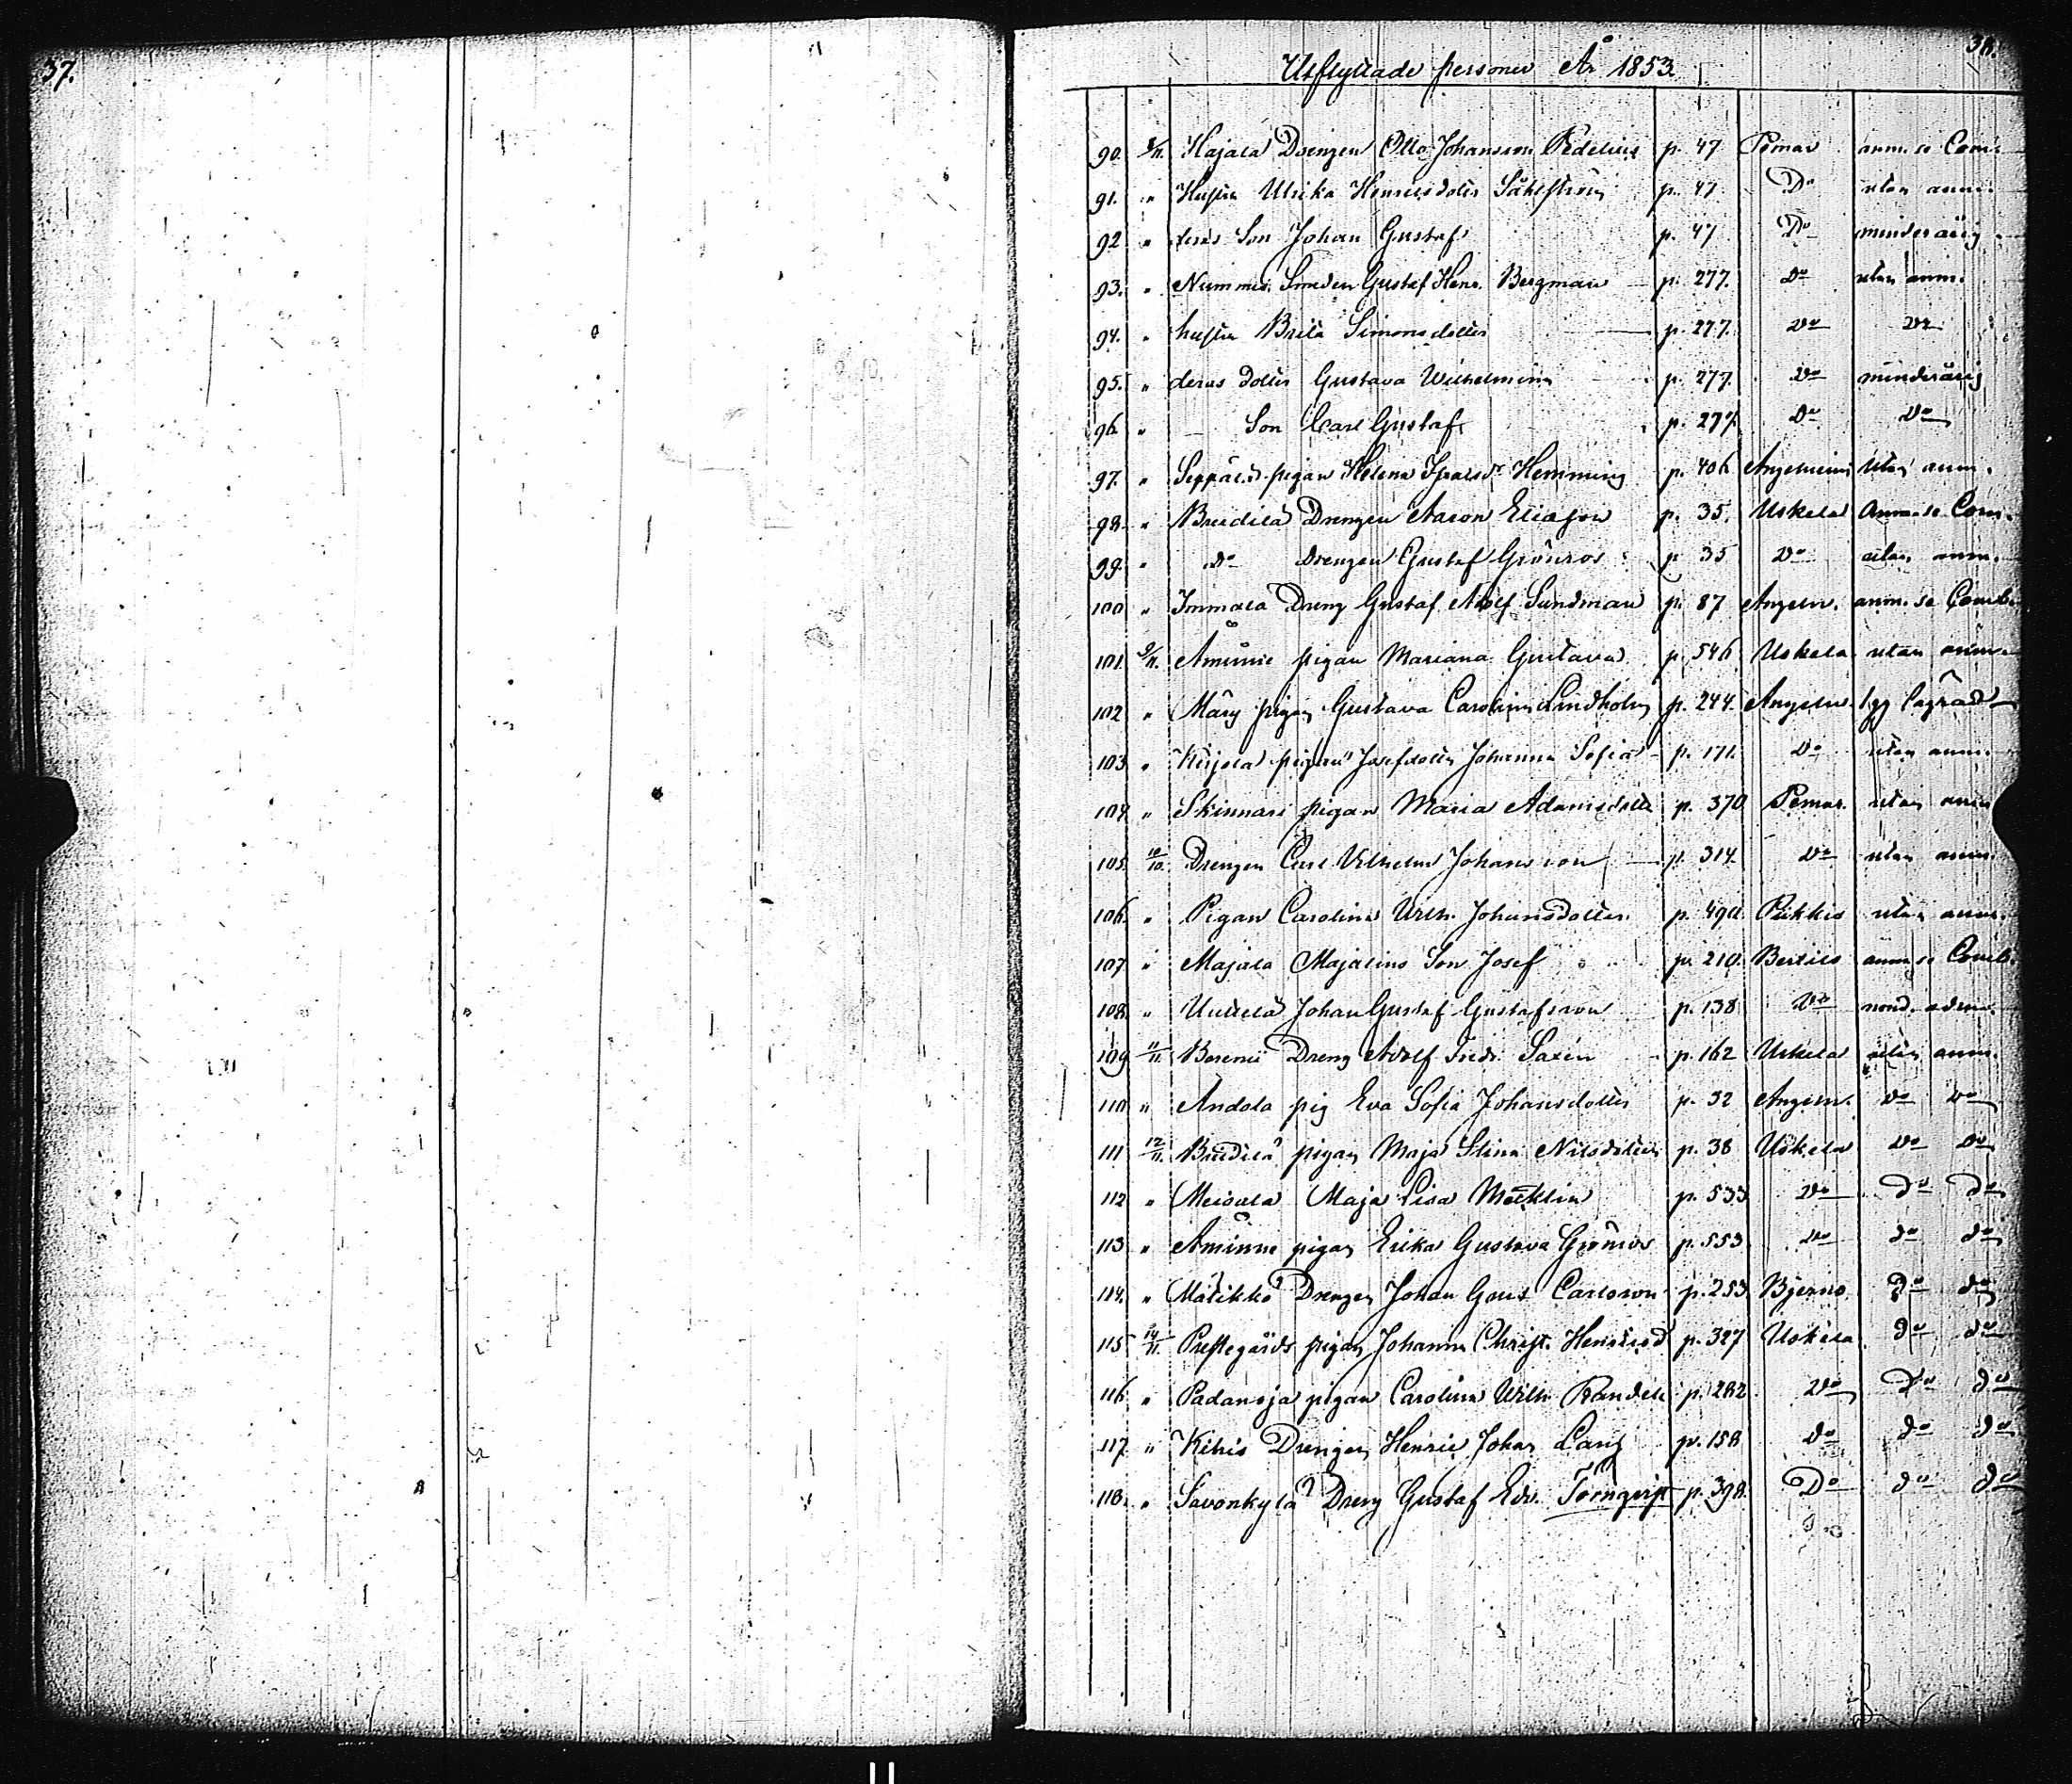 37.
38.
Utflyttade personer År 1853.
90. 8/11. Hajala Drengen Otto Johansson Redelius p. 47 Pemar anm. se Com.
91. " Hustru Ulrika Henricsdotter Sählström p. 47 Do utan anm.
92 " deras Son Johan Gustaf p. 47 Do minderårig
93. " Nummis. Smeden Gustaf Henr. Bergman p. 277. Do utan anm.
94. " hustru Brita Simonsdotter p. 277. Do Do
95. " deras dotter Gustava Wilhelmina p. 277. Do minderårig
96. " — Son Carl Gustaf p. 277. Do Do
97. " Seppälä pigan Helena Hemming p. 406 Angelniemi utan anm.
98. " Bredilä Drengen Aaron Eliasson p. 35. Uskela Anm. se Com.
99. " do Drengen Gustaf Grönros p. 35 Do utan anm.
100 " Immala Dreng Gustaf Adolf Sundman p. 87 Angeln. anm. se Comb.
101. 9/11. Åminne pigan Mariana Gustava p. 546 Uskela utan anm.
102 " Märy pigan Gustava Carolina Lindholm p. 244. Angeln.
103. " Kirjola pigan Josefsdotter Johanna Sofia p. 171. Do utan anm.
104 " Skinnari pigan Maria Adamsdotter p. 370 Pemar. utan anm
105. 10/10. Drengen Carl Vilhelm Johansson p. 314. Do utan anm.
106. " Pigan Carolina Wilh. Johansdotter p. 490. Piikkis utan anm.
107 " Majala Majalins Son Josef p. 210. Bertils anm se Comb.
108. " Uutela Johan Gustaf Gustafsson p. 138 Do
109 11/11. Dreng Adolf Fredr. Saxén p. 162 Uskela utan anm.
110 " Andola pig Eva Sofia Johansdotter p. 32 Angeln. do do
111 12/11. Bredilä pigan Maja Stina Nilsdotter p. 38 Uskela Do Do
112 " Meisala Maja Lisa Mecklin p. 533 Do Do Do
113 " Åminne pigan Erika Gustava Grönros p. 553 Do do do
114. " Mätikkö Drengen Johan Gust Carlsson p. 253 Bjerno Do do
115 14/11. Prestegårds pigan Johanna Christ. Henricsd p. 327 Uskela do do
116 " Padanoja pigan Carolina Wilh. Randell p. 282 Do Do do
117. " Kihis Drengen Henric Johan Lang p. 158 Do do do
118. " Savonkylä Dreng Gustaf Edv. Törnqvist p. 398. Do do do